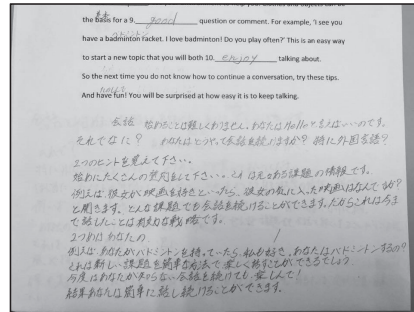 the basis for a 9. good question or comment. For example, 'I see you
have a badminton racket. I love badminton! Do you play often?' This is an easy way
to start a new topic that you will both 10. enjoy talking about.
So the next time you do not know how to continue a conversation, try these tips.
And have fun! You will be surprised at how easy it is to keep talking.
会話 始めることは難しくありません。あなたはHelloと言えばいいのです。
それでなに? あなたはどうやって会話を続けますか? 特に外国語で?
2つのヒントを覚えて下さい。
始めにたくさんの質問をして下さい。これは元ある課題の情報です。
例えば彼女が映画を好きといったら、彼女の気に入った映画はなんですか?
と聞きます。どんな課題でも会話を続けることができます。だからこれは今まで
で話したことは有効な戦略です。
2つめはあなたの
例えばあなたがバドミントンを持っていたら、私も好き、あなたはバドミントンするの?
これは新しい課題を簡単な方法で楽しく話すことができるでしょう
今度はあなたが知らない会話を続けても楽しんで!
結果あなたは簡単に話し続けることができます。